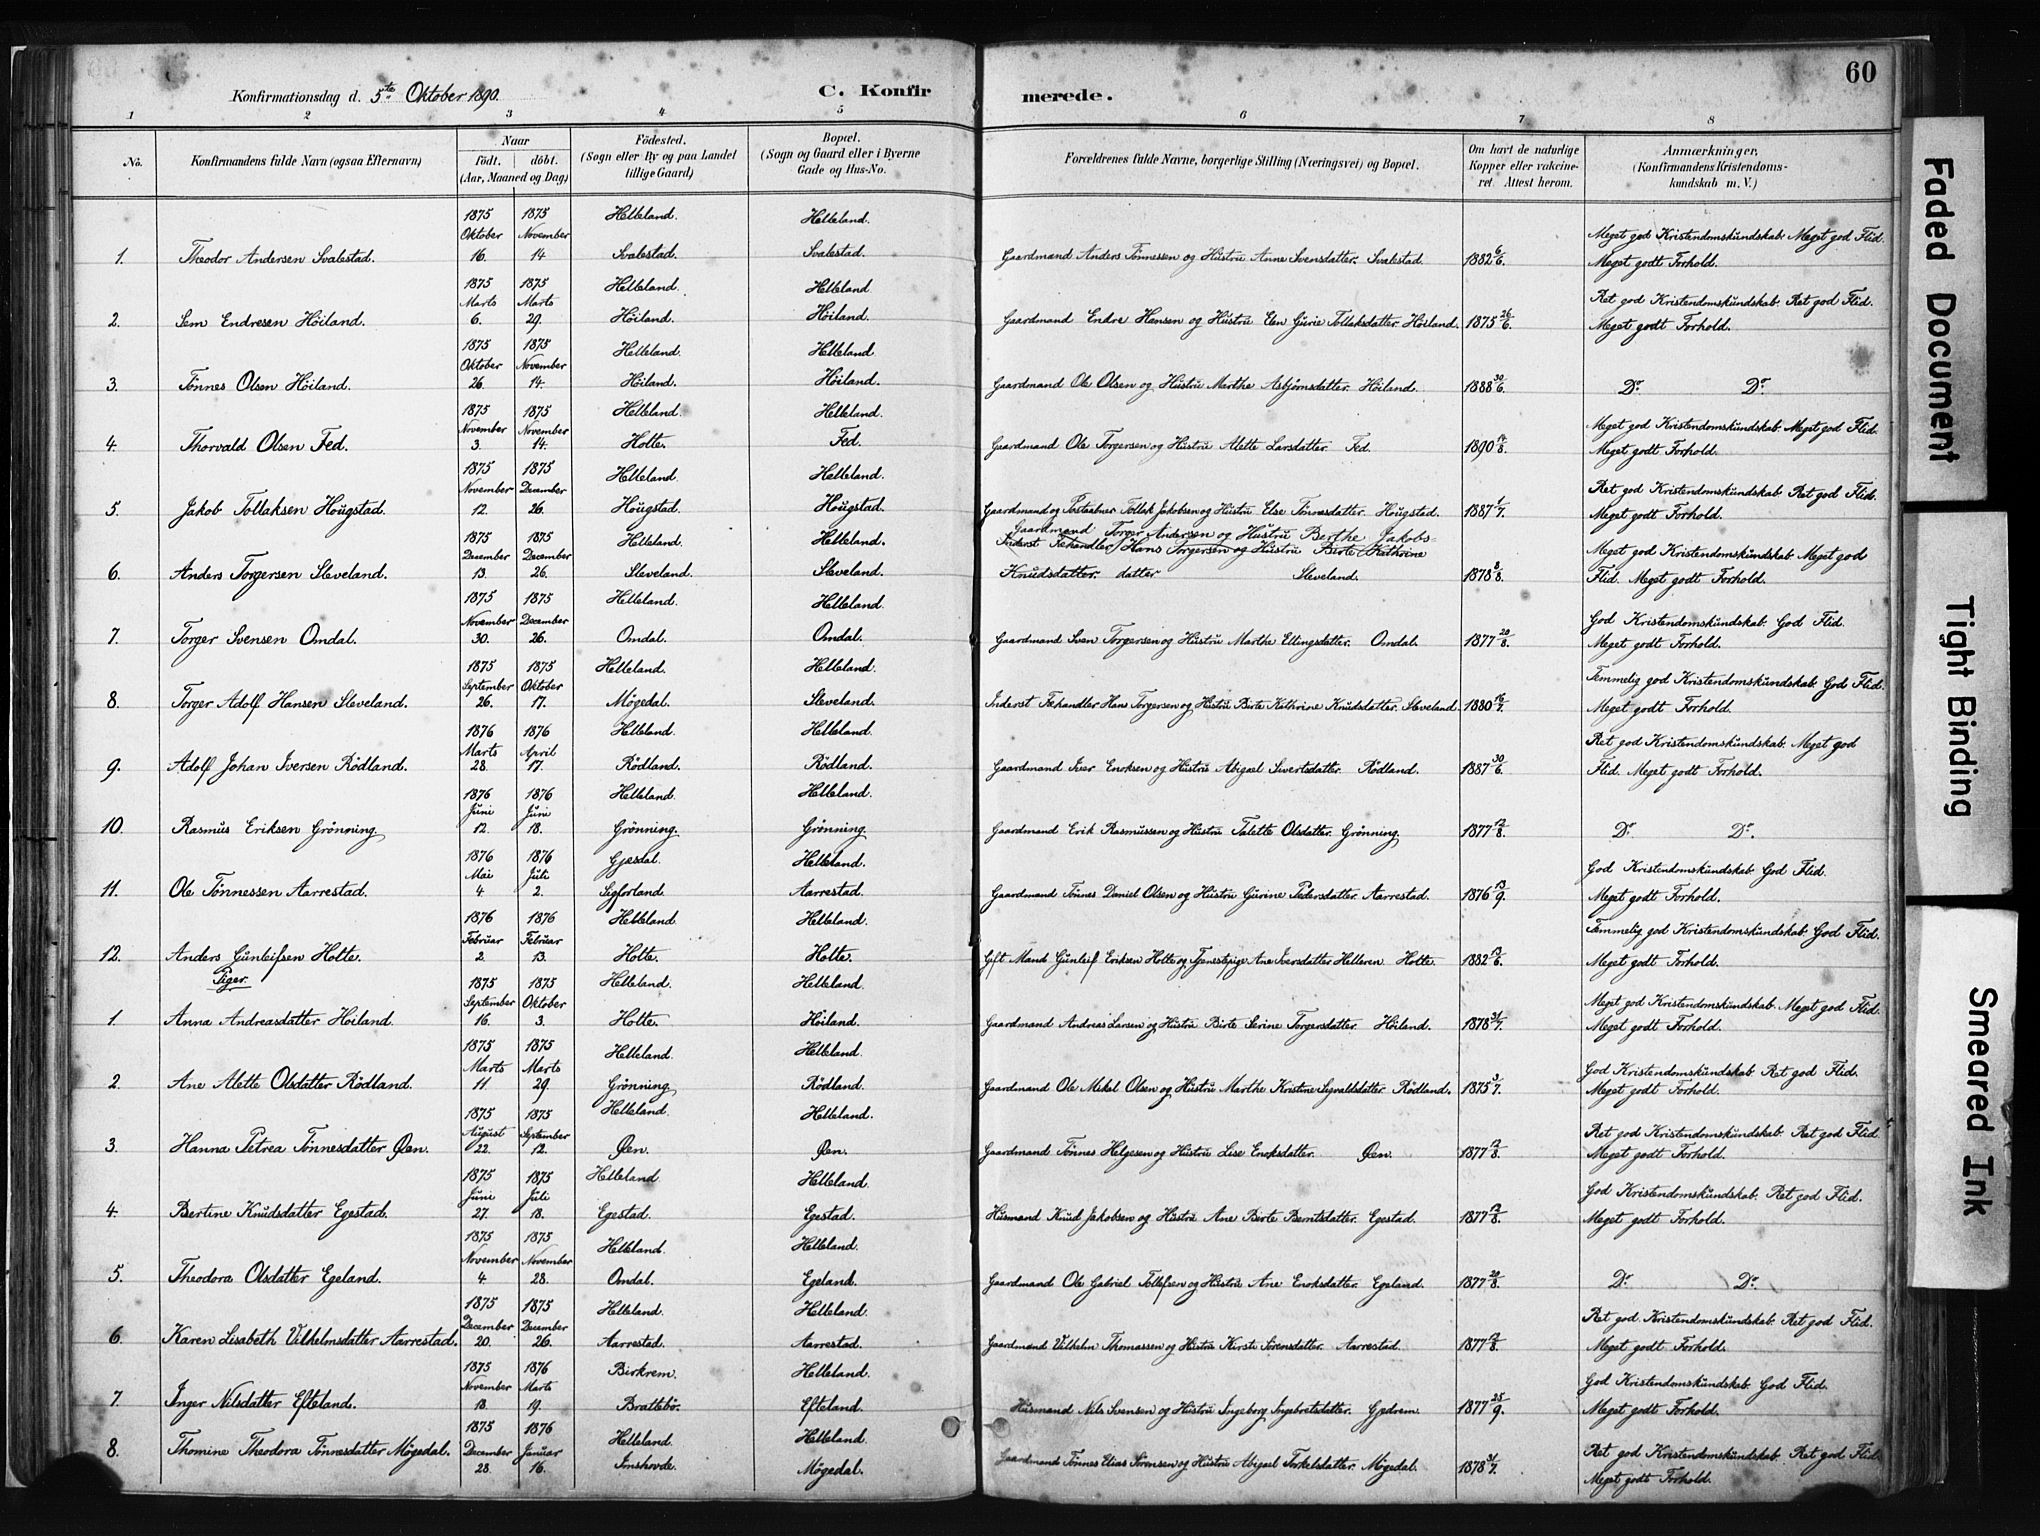 60
Konfirmationsdag d. 5te Oktober 1890.
C. Konfirmerede.
1 2 3 4 5 6 7 8
No. Konfirmandens fulde Navn (ogsaa Efternavn) Naar födt. döbt. (Aar, Maaned og Dag) Födested. (Sogn eller By og paa Landet tillige Gaard) Bopæl. (Sogn og Gaard eller i Byerne Gade og Hus-No. Forældrenes fulde Navne, borgerlige Stilling (Næringsvei) og Bopæl. Om havt de naturlige Kopper eller vakcineret. Attest herom. Anmærkninger, (Konfirmandens Kristendomskundskab m. V.)
1875 Oktober 1875 November Helleland. Helleland. Meget god Kristendomskundskab. Meget god Flid.
1. Theodor Andersen Svalestad. 16. 14 Svalestad. Svalestad. Gaardmand Anders Tønnessen og Hustru Anne Svensdatter. Svalestad. 1882 6/6. Meget godt Forhold.
1875 Marts 1875 Marts Helleland. Helleland Ret god Kristendomskundskab. Ret god Flid.
2. Sem Endresen Höiland. 6. 29. Höiland. Höiland. Gaardmand Endre Hansen og Hustru Elen Gurie Tollaksdatter Höiland. 1875 26/6. Meget godt Forhold.
1875 Oktober 1875 November Helleland. Helleland.
3. Tönnes Olsen Höiland. 26. 14. Höiland. Höiland. Gaardmand Ole Olsen og Hustru Marthe Asbjørnsdatter. Höiland. 1888 30/6. Do. Do.
1875 November 1875 November Helleland. Helleland. Meget god Kristendomskundskab. Meget god Flid.
4. Thorvald Olsen Fed. 3. 14. Holte. Fed. Gaardmand Ole Torgersen og Hustru Alette Larsdatter. Fed. 1890 14/8. Meget godt Forhold.
1875 November 1875 December Helleland. Helleland. Ret god Kristendomskundskab. Ret god Flid.
5. Jakob Tollaksen Hougstad. 12. 26. Hougstad. Hougstad. Gaardmand og Postaabner Tollak Jakobsen og Hustru Else Tönnesdatter. Hougstad. 1887 1/7. Meget godt Forhold.
1875 December 1875 December Helleland. Helleland. Gaardmand Torger Andersen og Hustru Berthe Jakobs-
Inderst Fehandler Hans Torgersen og Hustru Birte Kathrine Meget god Kristendomskundskab. Meget god
6. Anders Torgersen Sleveland. 13. 26. Sleveland. Sleveland. Knudsdatter. datter Sleveland. 1878 8/8. Flid. Meget godt Forhold.
1875 November 1875 December Helleland. Helleland. God Kristendomskundskab. God Flid.
7. Torger Svensen Omdal. 30. 26. Omdal. Omdal. Gaardmand Sven Torgersen og Hustru Marthe Ellingsdatter. Omdal. 1877 20/8. Meget godt Forhold.
1875 September 1875 Oktober Helleland. Helleland. Temmelig god Kristendomskundskab. God Flid.
8. Torger Adolf Hansen Sleveland. 26. 17. Mögedal. Sleveland. Inderst Fehandler Hans Torgersen og Hustru Birte Kathrine Knudsdatter. Sleveland. 1880 16/7. Meget godt Forhold.
1876 Marts 1876 April Helleland. Helleland. Ret god Kristendomskundskab. Meget god
9. Adolf Johan Iversen Rödland. 28. 17. Rödland. Rödland. Gaardmand Iver Enoksen og Hustru Abigael Sivertsdatter. Rödland. 1887 30/6. Flid. Meget godt Forhold.
1876 Juni 1876 Juni Helleland. Helleland.
10. Rasmus Eriksen Grönning 12. 18. Grönning. Grönning. Gaardmand Erik Rasmussen og Hustru Talette Olsdatter. Grönning. 1877 12/8. Do. Do.
1876 Mai 1876 Juli Gjesdal. Helleland. God Kristendomskundskab. God Flid.
11. Ole Tönnessen Aarrestad. 4. 2. Sigforland. Aarrestad. Gaardmand Tönnes Daniel Olsen og Hustru Gurine Pedersdatter. Aarrestad. 1876 13/9. Meget godt Forhold.
1876 Februar 1876 Februar Helleland Helleland. Temmelig god Kristendomskundskab. God Flid.
12. Anders Gunleifsen Holte. 2. 13. Holte. Holte. Gift Mand Gunleif Eriksen Holte og Tjenestepige Ane Iversdatter Helleren. Holte. 1882 12/6. Meget godt Forhold.
Piger.
1875 September 1875 Oktober Helleland. Helleland. Meget god Kristendomskundskab. Meget god Flid.
1. Anna Andreasdatter Höiland. 16. 3. Holte. Höiland. Gaardmand Andreas Larsen og Hustru Birte Serine Torgersdatter. Höiland. 1878 31/7. Meget godt Forhold.
1875 Marts 1875 Marts Helleland. Helleland. God Kristendomskundskab. Ret god Flid.
2. Ane Alette Olsdatter Rödland. 11 29. Grönning Rödland. Gaardmand Ole Mikal Olsen og Hustru Marthe Kristine Sigvaldsdatter. Rödland. 1875 3/7. Meget godt Forhold.
1875 August 1875 September Helleland. Helleland. Ret god Kristendomskundskab. Ret god Flid.
3. Hanna Petrea Tönnesdatter Øen. 22. 12. Øen. Øen. Gaardmand Tönnes Helgesen og Hustru Lise Enoksdatter. Øen. 1877 12/8. Meget godt Forhold.
1875 Juni 1875 Juli Helleland. Helleland. God Kristendomskundskab. Ret god Flid.
4. Bertine Knudsdatter Egestad. 27. 18. Egestad. Egestad. Husmand Knud Jakobsen og Hustru Ane Birte Berntsdatter. Egestad. 1877 12/8. Meget godt Forhold.
1875 November 1875 November Helleland. Helleland.
5. Theodora Olsdatter Egeland. 4 28. Omdal. Egeland. Gaardmand Ole Gabriel Tollefsen og Hustru Ane Enoksdatter. Egeland. 1877 20/8. Do. Do.
1875 December 1875 December Helleland. Helleland. Ret god Kristendomskundskab. Ret god Flid.
6. Karen Lisabeth Vilhelmsdatter Aarrestad. 20. 26. Aarrestad. Aarrestad. Gaardmand Vilhelm Thomassen og Hustru Kirste Sörensdatter. Aarrestad. 1877 12/8. Meget godt Forhold.
1875 November 1876 Marts Birkrem. Helleland. God Kristendomskundskab. God Flid.
7. Inger Nilsdatter Efteland. 18. 19. Brattebö. Efteland. Husmand Nils Svensen og Hustru Ingeborg Ingebretsdatter. Gjedrem. 1877 25/9. Meget godt Forhold.
1875 December 1876 Januar Helleland. Helleland. Ret god Kristendomskundskab. Ret god Flid.
8. Thomine Theodora Tönnesdatter Mögedal. 28. 16. Imshovde. Mögedal. Gaardmand Tönnes Elias Sörensen og Hustru Abigael Torkelsdatter. Mögedal. 1878 31/7. Meget godt Forhold.
Faded Document
Tight Binding
Smeared Ink